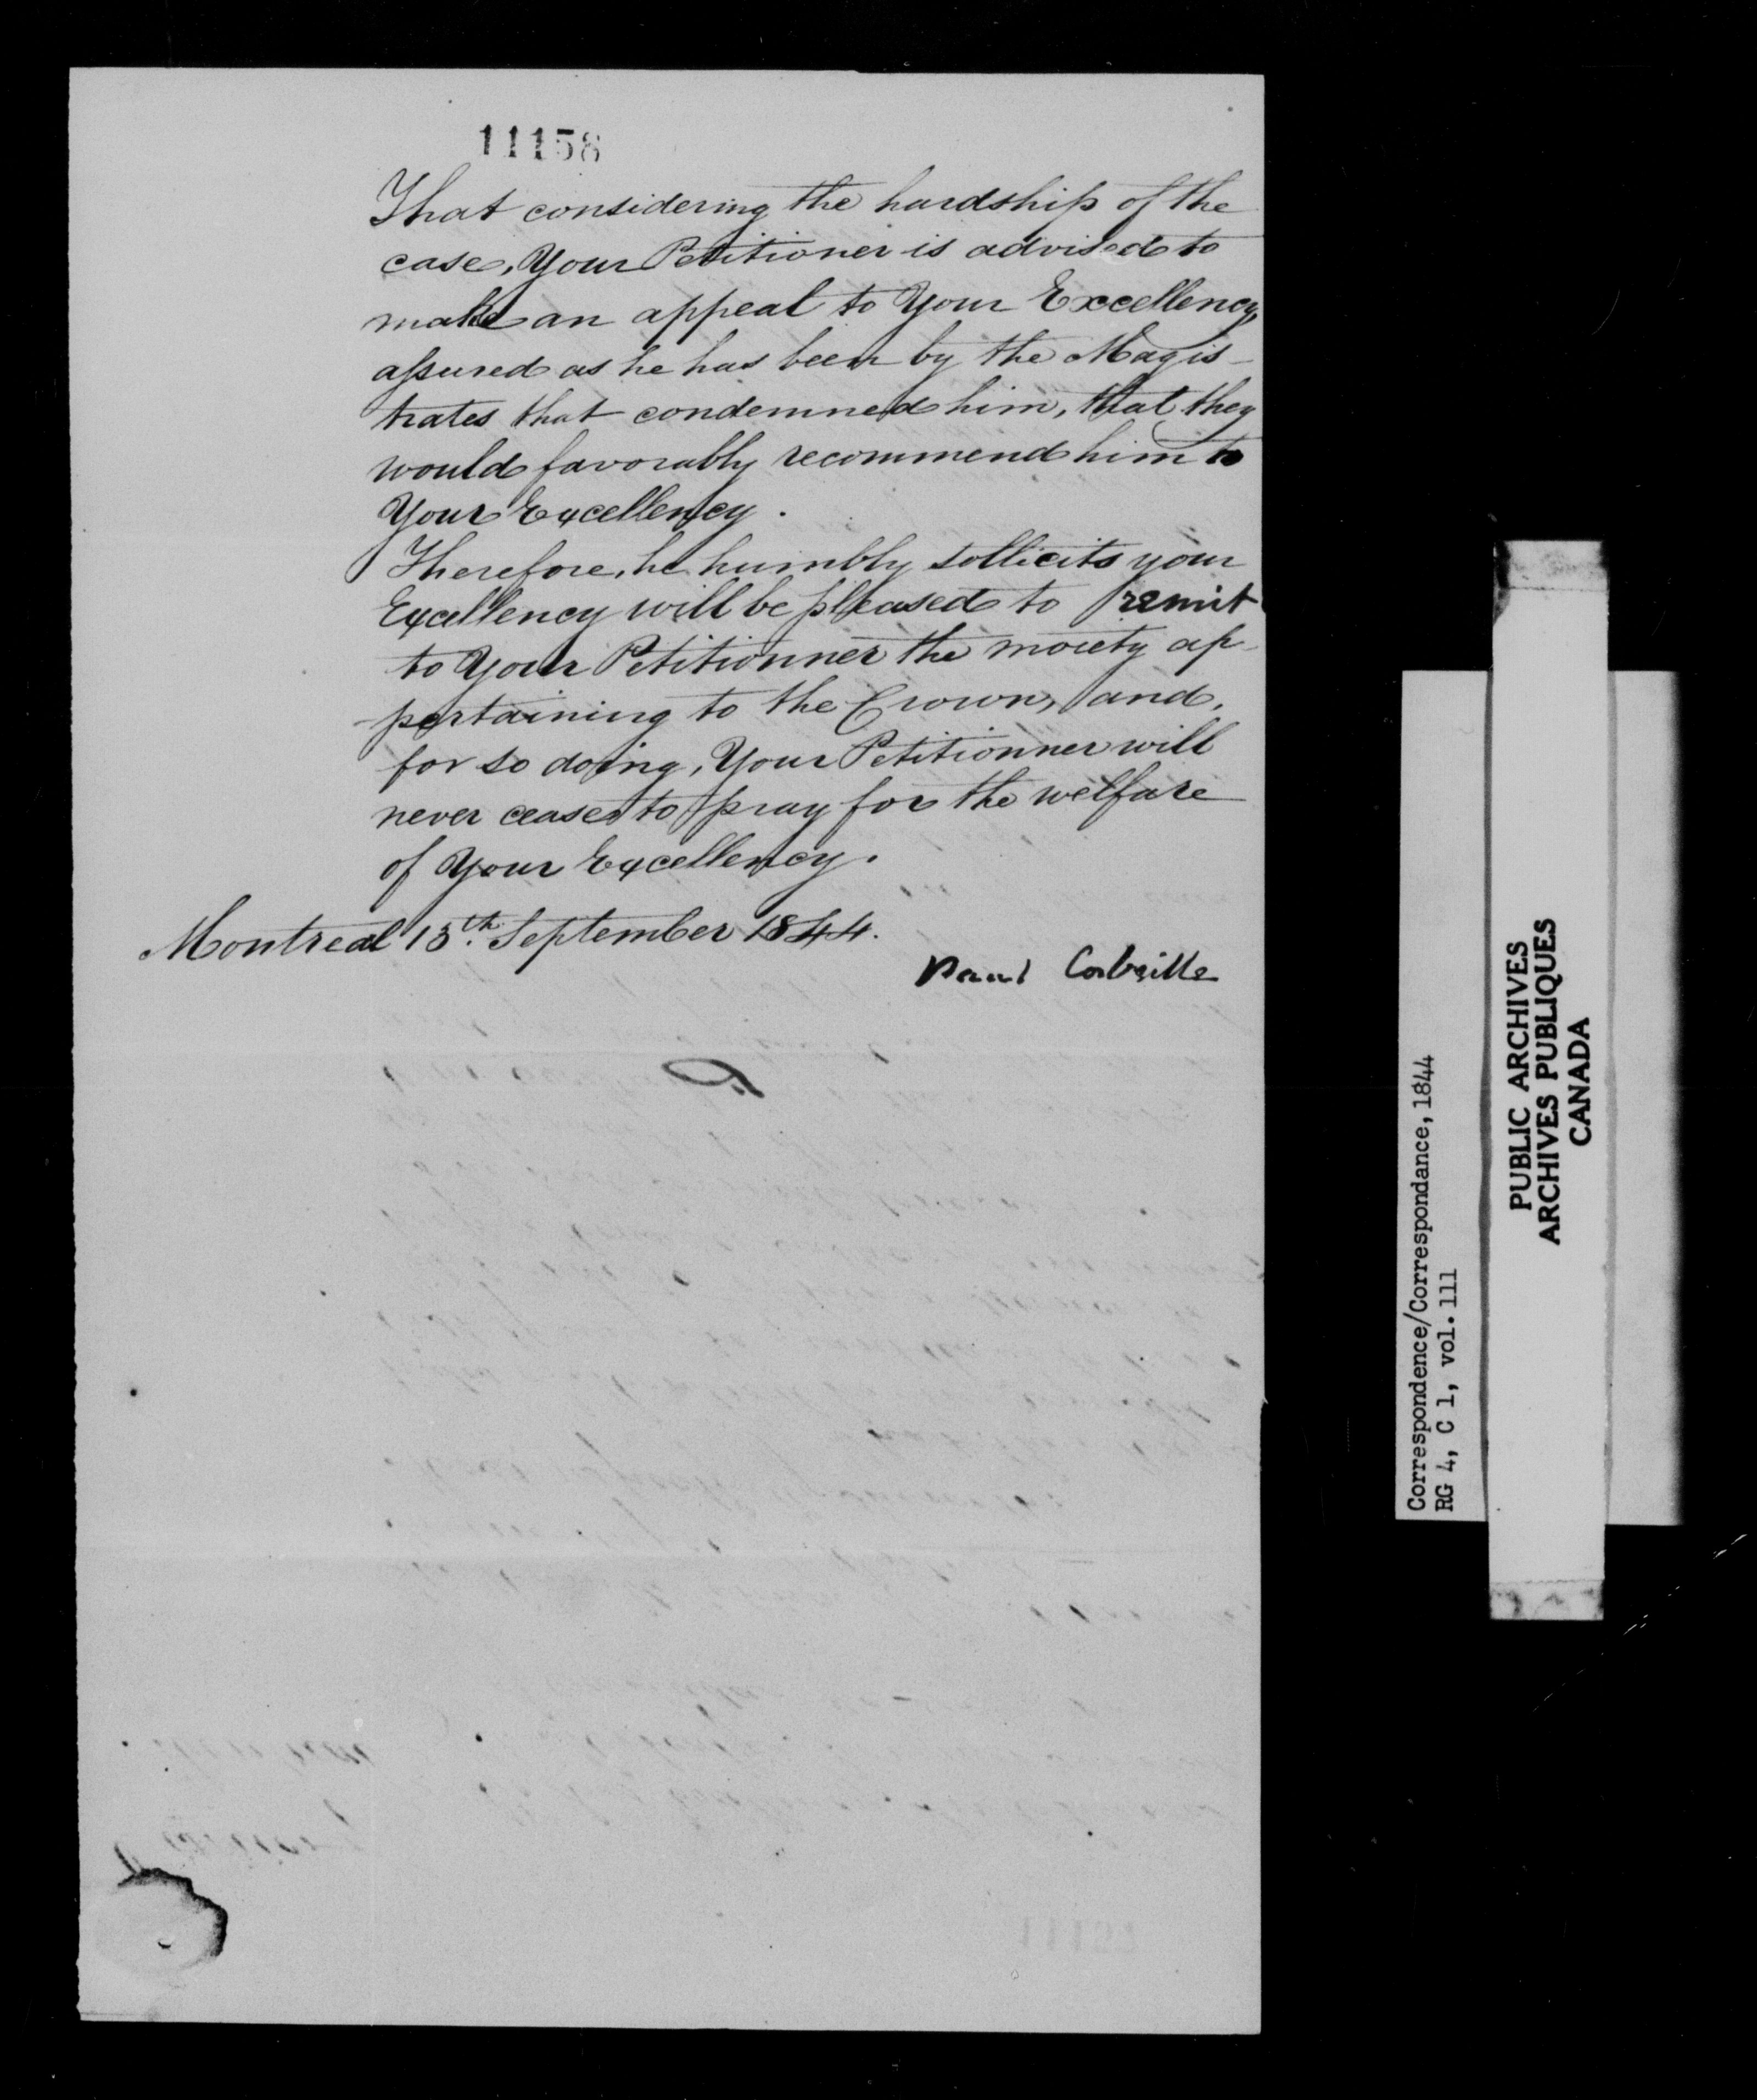 11158
That considering the hardship of the
case, Your Petitioner is advised to
make an appeal to Your Excellency,
assured as he has been by the Magis-
trates that condemned him, that they
would favorably recommend him to
Your Excellency.
Therefore, he humbly sollicits your
Excellency will be pleased to remit
to Your Petitionner the moiety ap-
pertaining to the Crown, and,
for so doing, Your Petitionner will
never cease to pray for the welfare
of Your Excellency.
Montreal 13th September 1844.
Paul Corbeille
Correspondence/Correspondance, 1844
RG 4, C 1, vol. 111
PUBLIC ARCHIVES
ARCHIVES PUBLIQUES
CANADA